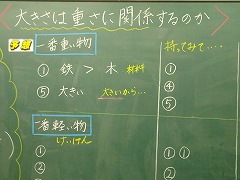 大きさは重さに関係するのか
予想
一番重い物
① 鉄 > 木 材料
⑤ 大きい 大きいから…
一番軽い物
けいけん
②
③
持ってみて‥‥
①
④
⑤
①①
②